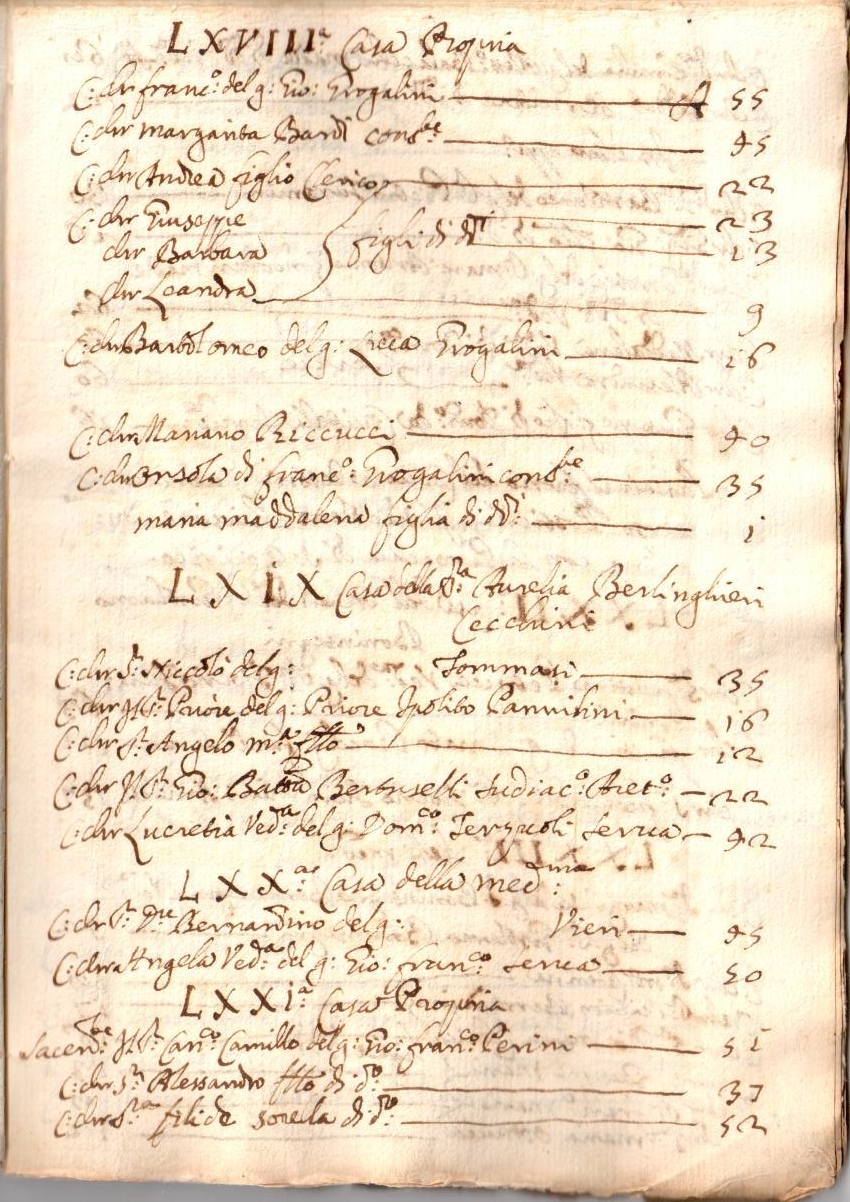 LXVIII.ª Casa Propria
C: chr franc.º del q: Gio: Grogalini 55
C: chr margarita Bardi cons.te 45
C: chr Andrea figlio Clerico 22
C: chr Giuseppe 23
chr Barbara figli di d.ti 13
chr Leandra 9
C: chr Bartolomeo del q: Grogalini 16
C: chr Mariano Riccucci 40
C: chr Orsola di franc.º: Grogalini cons.te 35
maria maddalena figlia di dd.i: 1
LXIX Casa della S.ra Aurelia Berlinghieri
Cecchini
C: chr S.r Niccolò del q: Tommasi 35
C: chr Priore del q: Priore Ipolito Pannilini 16
C: chr S.r Angelo m.ª 12
C: chr Gio: Batta Bertuselli Sudiac.º: 22
C: chr Lucretia Ved.ª del q: Dom.co Terzuoli serva 42
LXX.ª Casa della med.ma:
C: chr Bernardino del q: Vieri 45
C: chr Angela Ved.ª del q: Gio: fran.co serva 50
LXXI.ª Casa Propria
Can.co Camillo del q: Gio: fran.co Perini 51
C: chr S.r Alessandro fllo di d.º 37
C: chr S.ra filide sorella di d.º 52